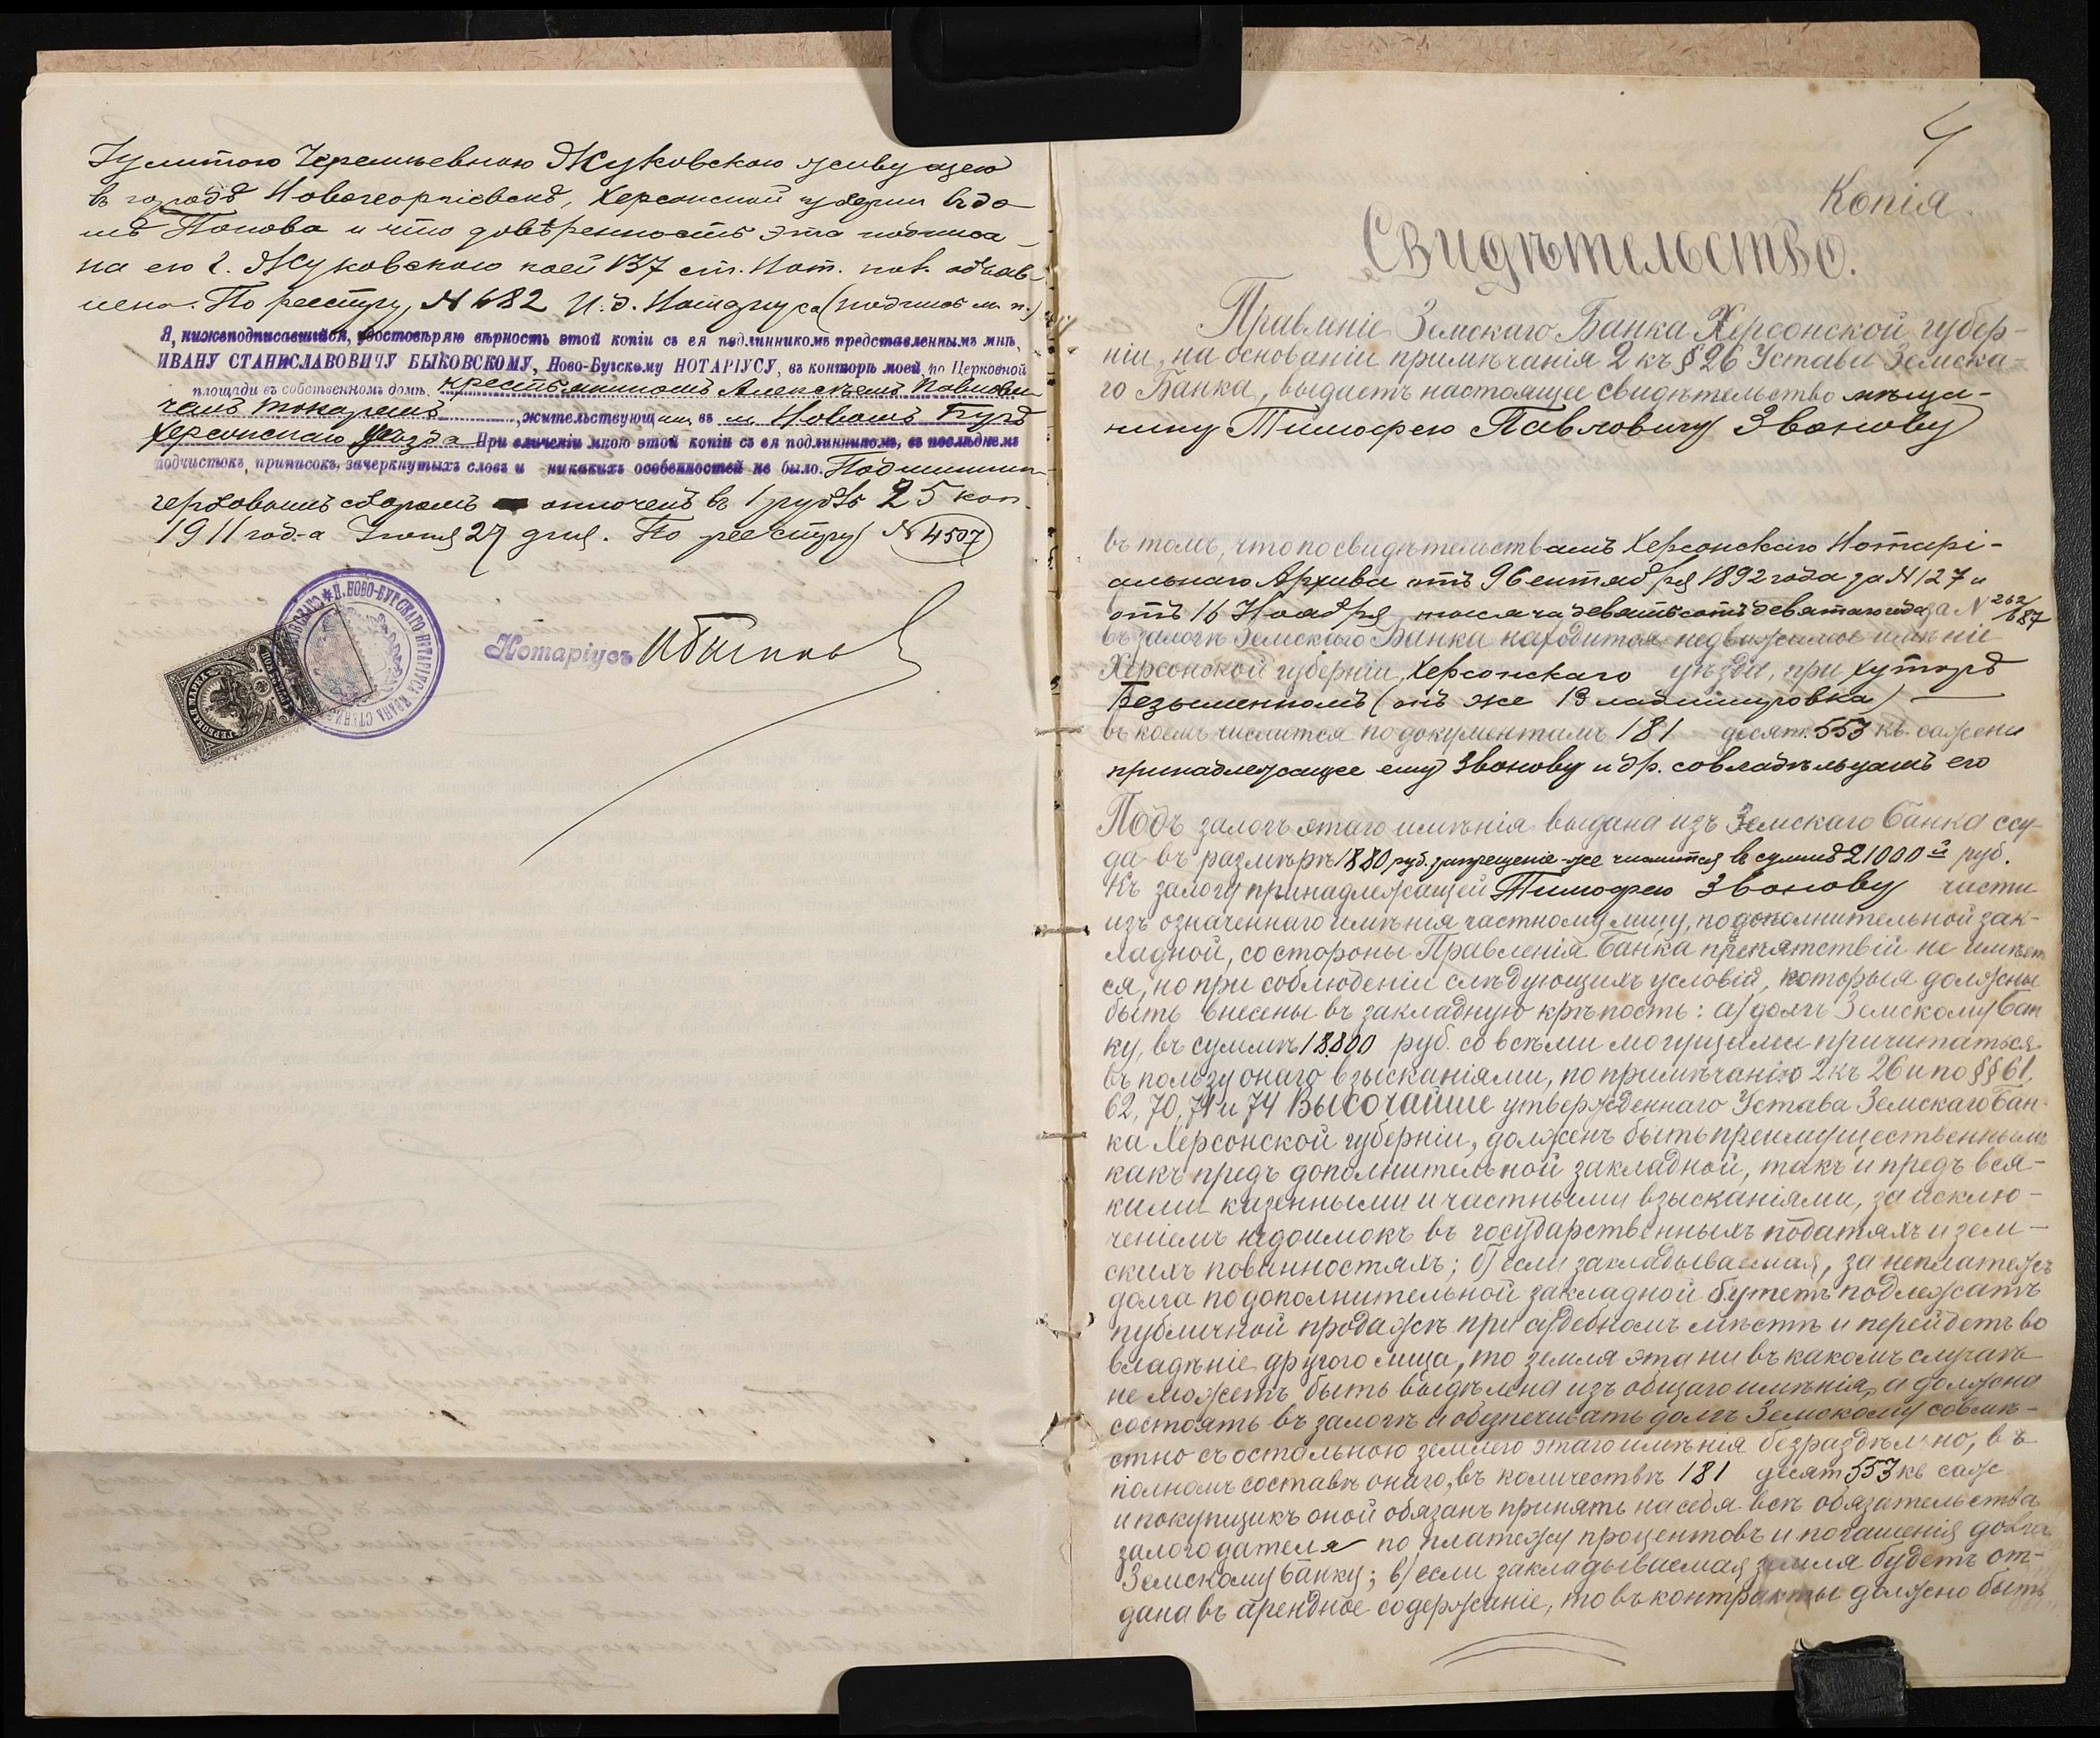 Еремѣевною Жуковскою живущею
въ городѣ Новогеоргіевскѣ, Херсонской губерніи въ до-
мѣ Попова и что довѣренность эта подписа-
на ею г. Жуковскою коей 137 ст. Нот. пол. объяв-
лена. По реестру № 682 И. д. Нотаріуса (подпись м. п.)
Я, нижеподписавшійся, удостовѣряю вѣрность этой копіи съ ея подлинникомъ представленнымъ мнѣ,
ИВАНУ СТАНИСЛАВОВИЧУ БЫКОВСКОМУ, Ново-Бугскому НОТАРІУСУ, въ конторѣ моей, по Церковной
площади въ собственномъ домѣ, крестьяниномъ Алексѣемъ Павлови-
чемъ Токаремъ, жительствующимъ въ м. Новомъ Бугѣ
Херсонскаго уѣзда При сличеніи мною этой копіи съ ея подлинникомъ, въ послѣднемъ
подчистокъ, приписокъ, зачеркнутыхъ словъ и никакихъ особенностей не было. Подлинникъ
гербовымъ сборомъ оплоченъ въ 1 рубль 25 коп.
1911 год-а Іюня 27 дня. По реестру № 4507
Н.-НОВО-БУГСКАГО НОТАРІУСА ИВАНА
ГЕРБОВАЯ МАРКА
Нотаріусъ
4
Копія
Свидѣтельство.
Правленіе Земскаго Банка Херсонской губер-
ніи, на основаніи примѣчанія 2 къ § 26 Устава Земска-
го Банка, выдаетъ настоящее свидѣтельство мѣща-
нину Тимофею Павловичу Звонову
въ томъ, что по свидѣтельствамъ Херсонскаго Нотарі-
альнаго Архива отъ 9 Сентября 1892 года за № 127 и
отъ 16 Ноября тысяча девятьсотъ девятаго года за № 262/687
въ залогѣ Земскаго Банка находится недвижимое имѣніе
Херсонской губерніи, Херсонскаго уѣзда, при хуторѣ
Безыменномъ (онъ же Владиміровка)
въ коемъ числится по документамъ 181 десят. 553 кв. сажени
принадлежащее ему Звонову и др. совладѣльцамъ его
Подъ залогъ этаго имѣнія выдана изъ Земскаго банка ссу-
да въ размѣрѣ 18800 руб. запрещеніе же числится въ суммѣ 21000 руб.
Къ залогу принадлежащей Тимофею Звонову части
изъ означеннаго имѣнія частному лицу, по дополнительной зак-
ладной, со стороны Правленія Банка препятствій не имѣет
ся, но при соблюденіи слѣдующихъ условій, которыя должны
быть внесены въ закладную крѣпость: а) долгъ Земскому Бан
ку, въ суммѣ 18.800 руб. со всѣми могущими причитаться
въ пользу онаго взысканіями, по примѣчанію 2 къ 26 и по §§ 61,
62, 70, 71 и 74 Высочайше утвержденнаго Устава Земскаго Бан-
ка Херсонской губерніи, долженъ быть преимущественнымъ
какъ предъ дополнительной закладной, такъ и предъ вся-
кими казенными и частными взысканіями, за исклю-
ченіемъ недоимокъ въ государственныхъ податяхъ и зем-
скихъ повинностяхъ; б) если закладываемая, за неплатежъ
долга по дополнительной закладной будетъ подлежатъ
публичной продажѣ при судебномъ мѣстѣ и перейдетъ во
владѣніе другого лица, то земля эта ни въ какомъ случаѣ
не можетъ быть выдѣлена изъ общаго имѣнія, а должна
состоять въ залогѣ и обезпечивать долгъ Земскому совмѣ-
стно съ остальною землею этаго имѣнія безраздѣльно, въ
полномъ составѣ онаго, въ количествѣ 181 десят 553 кв саж.
и покупщикъ оной обязанъ принять на себя всѣ обязательства
залогодателя по платежу процентовъ и погашенія долга
Земскому Банку; в) если закладываемая земля будетъ от-
дана въ арендное содержаніе, то въ контракты должно быть